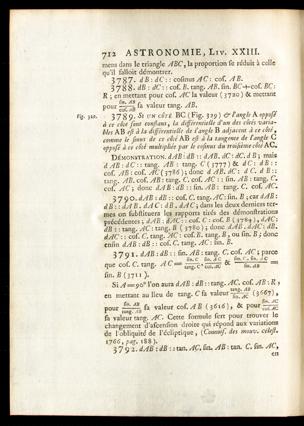 712 ASTRONOMIE, LIV. XXIII.
mens dans le triangle ABC, la proportion se réduit à celle
qu'il falloit démontrer.
3787. dB : dC :: cosinus AC : cos. AB.
3788. dB : dC :: cos. B. tang. AB. sin. BC + cos. BC :
R; en mettant pour cos. AC la valeur (3720) & mettant
pour sin. AB / cos. AB sa valeur tang. AB.
Fig. 329. 3789. SI UN CÔTÉ BC (Fig. 329) & l'angle B opposé
à ce côté sont constans, la différentielle d'un des côtés varia-
bles AB est à la différentielle de l'angle B adjacent à ce côté,
comme le sinus de ce côté AB est à la tangente de l'angle C
opposé à ce côté multipliée par le cosinus du troisième côté AC.
DÉMONSTRATION. dAB : dB :: dAB. dC : dC. dB; mais
dAB : dC :: tang. AB : tang. C (3777) & dC : dB ::
cos. AB : cos. AC (3786); donc dAB. dC : dC. dB ::
tang. AB. cos. AB : tang. C. cos. AC :: sin. AB : tang. C.
cos. AC; donc dAB : dB :: sin. AB : tang. C. cos. AC.
3790. dAB : dB :: cot. C. tang. AC : sin. B; car dAB :
dB :: dAB. dAC : dB. dAC; dans les deux derniers ter-
mes on substituera les rapports tirés des démonstrations
précédentes; dAB : dAC :: cos. C : cos. B (3784), dAC :
dB :: tang. AC : tang. B (3780); donc dAB. dAC : dB.
dAC :: cos. C. tang. AC : cos. B. tang. B, ou sin. B; donc
enfin dAB : dB :: cos. C. tang. AC : sin. B.
3791. dAB : dB :: sin. AB : tang. C. cos. AC; parce
que cos. C. tang. AC =
sin. B (3711).
Si A = 90° l'on aura dAB : dB :: tang. AC. cos. AB : R,
en mettant au lieu de tang. C sa valeur tang. AB / sin. AC (3667),
pour sin. AB / tang. AB sa valeur cos. AB (3616), & pour sin. AC / cos. AC
sa valeur tang. AC. Cette formule sert pour trouver le
changement d'ascension droite qui répond aux variations
de l'obliquité de l'écliptique, (Connoiss. des mouv. célest.
1766, pag. 188).
3792. dAB : dB :: tan. AC. sin. AB : tan. C. sin. AC,
en